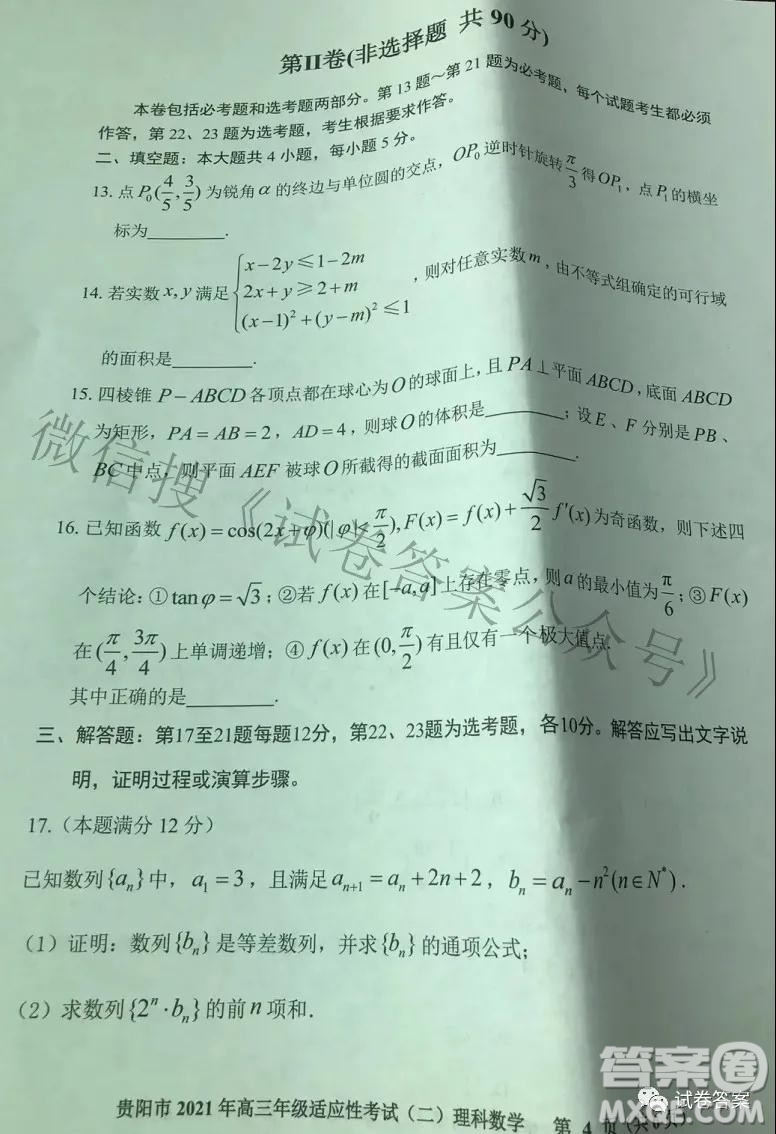 第II卷(非选择题 共90分)
本卷包括必考题和选考题两部分。第13题～第21题为必考题，每个试题考生都必须
作答，第22、23题为选考题，考生根据要求作答。
二、填空题：本大题共4小题，每小题5分。
13. 点P₀(4/5, 3/5)为锐角α的终边与单位圆的交点，OP₀逆时针旋转π/3得OP₁，点P₁的横坐
标为________.
14. 若实数x,y满足{x−2y≤1−2m
2x+y≥2+m
(x−1)²+(y−m)²≤1
，则对任意实数m，由不等式组确定的可行域
的面积是________.
15. 四棱锥P−ABCD各顶点都在球心为O的球面上，且PA⊥平面ABCD，底面ABCD
为矩形，PA=AB=2，AD=4，则球O的体积是________；设E、F分别是PB、
BC中点，则平面AEF被球O所截得的截面面积为________.
16. 已知函数f(x)=cos(2x+φ)(|φ|<π/2),F(x)=f(x)+√3/2 f′(x)为奇函数，则下述四
个结论：①tanφ=√3；②若f(x)在[−a,a]上存在零点，则a的最小值为π/6；③F(x)
在(π/4, 3π/4)上单调递增；④f(x)在(0, π/2)有且仅有一个极大值点.
其中正确的是________.
三、解答题：第17至21题每题12分，第22、23题为选考题，各10分。解答应写出文字说
明，证明过程或演算步骤。
17.（本题满分12分）
已知数列{aₙ}中，a₁=3，且满足aₙ₊₁=aₙ+2n+2，bₙ=aₙ−n²(n∈N*).
（1）证明：数列{bₙ}是等差数列，并求{bₙ}的通项公式；
（2）求数列{2ⁿ·bₙ}的前n项和.
贵阳市2021年高三年级适应性考试（二）理科数学 第4页
微信搜《试卷答案公众号》
试卷答案
答案圈
MXQE.COM